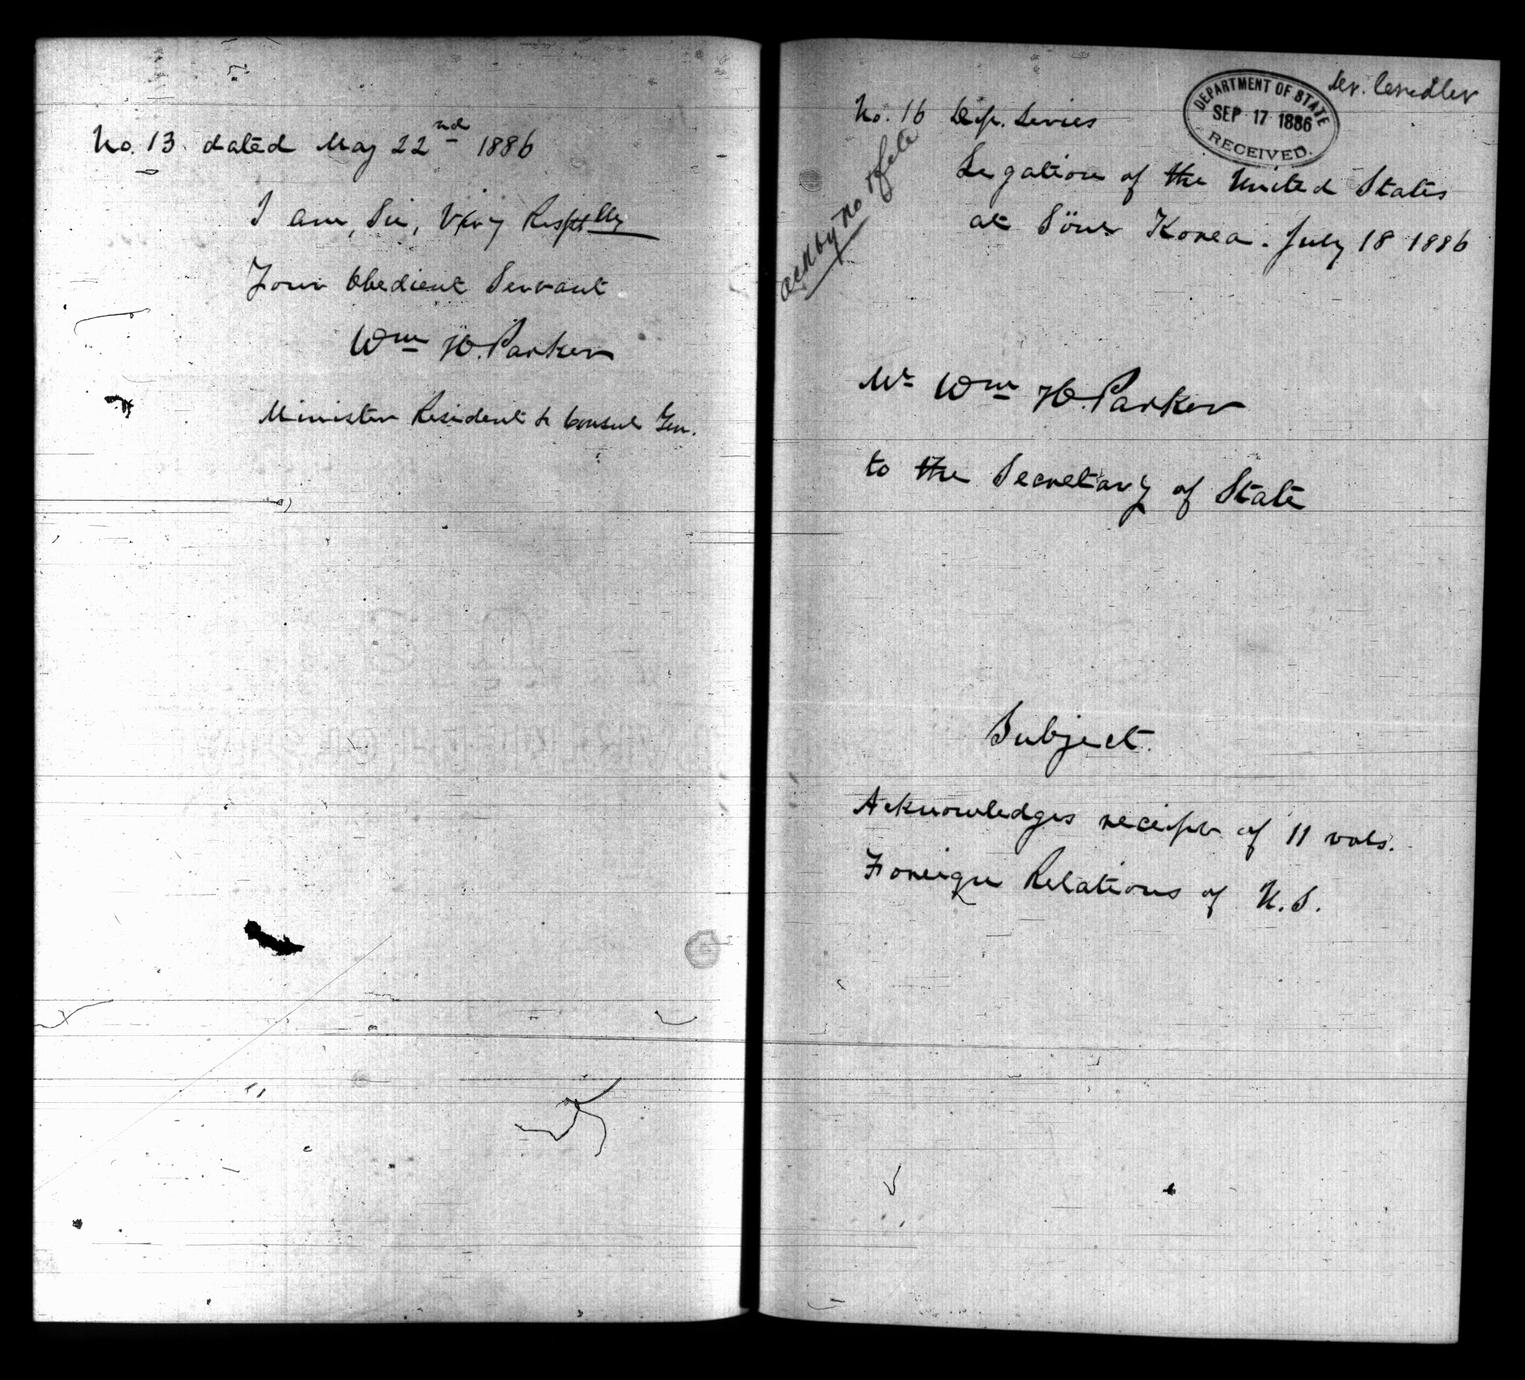 No. 13. dated May 22nd 1886
I am, Sir, Very Respetlly
Your Obedient Servant
Wm H. Parker
Minister Resident & Consul Gen.
No. 16 Dip. Series
DEPARTMENT OF STATE
SEP 17 1886
RECEIVED.
Legation of the United States
at Söul Korea. July 18 1886
ack by no
Mr Wm H. Parker
to the Secretary of State
Subject.
Acknowledges receipt of 11 vols.
Foreign Relations of U.S.